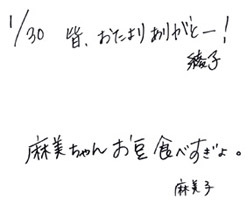 1/30 皆、おたよりありがとー!
綾子
麻美ちゃんお豆食べすぎょ。
麻美子